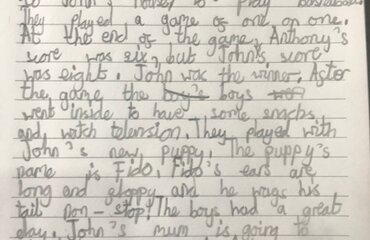 to John's house to play basketball
They played a game of one on one.
At the end of the game, Anthony's
score was six, but John's score
was eight. John was the winner. After
the game the boy's boys
went inside to have some snacks,
and watch telension. They played with
John's new puppy. The puppy's
name is Fido. Fido's ears are
long and gloppy and he wags his
tail non-stop! The boys had a great
day. John's mum is going to